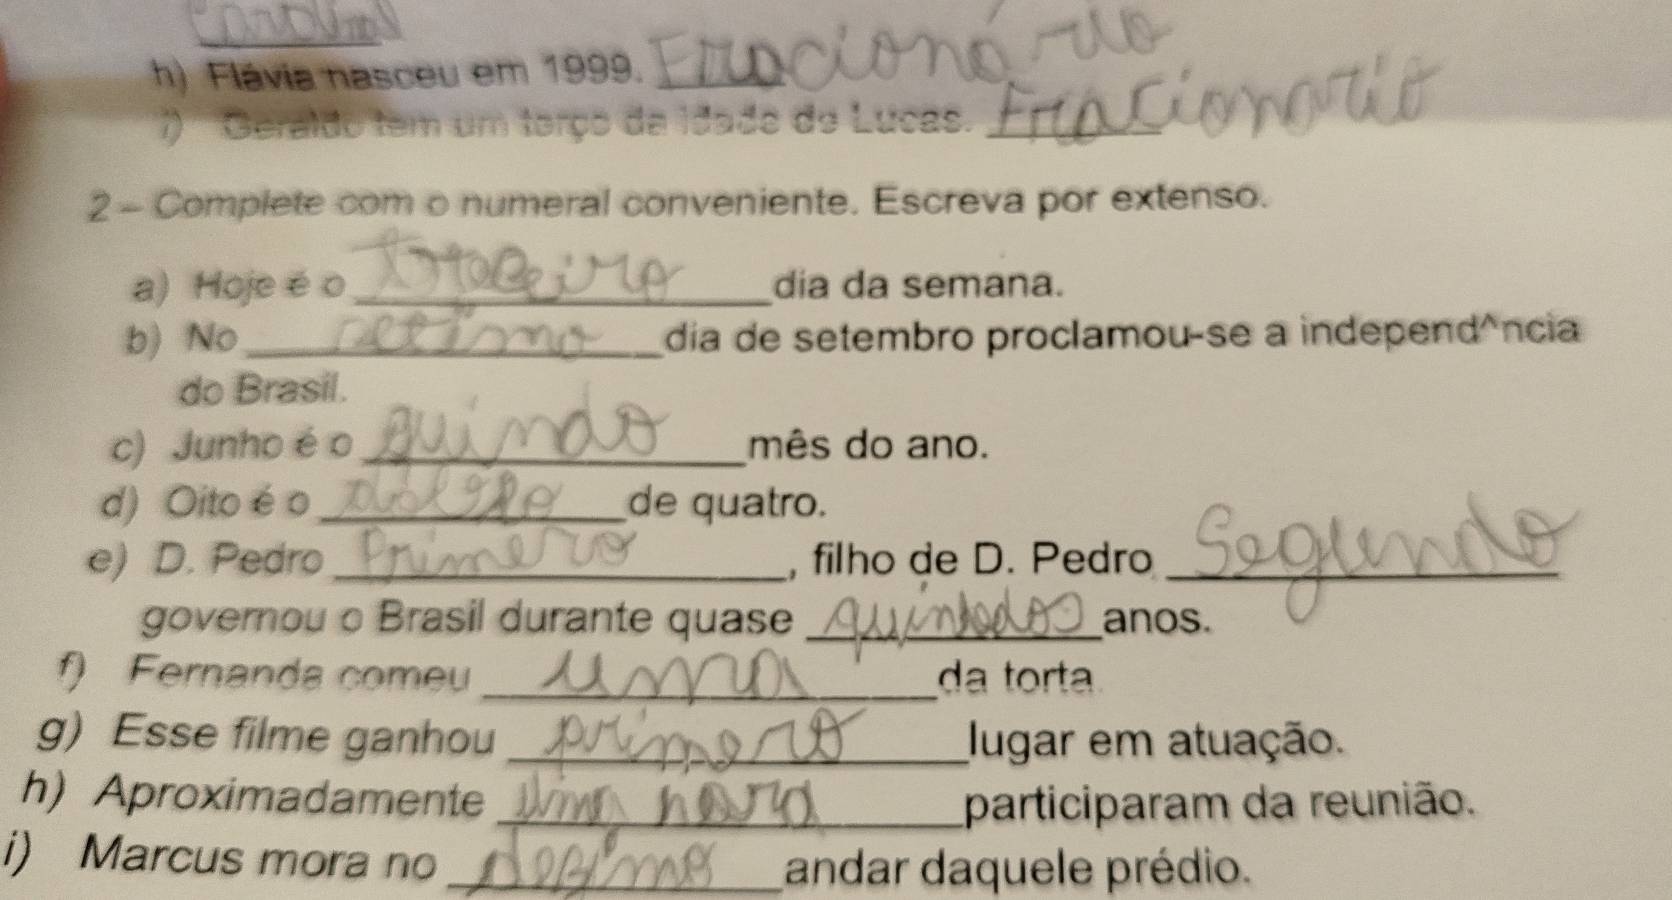 Cardinal
h) Flávia nasceu em 1999. Fracionário
i) Geraldo tem um terço da idade de Lucas. Fracionario
2 - Complete com o numeral conveniente. Escreva por extenso.
a) Hoje é o terceiro dia da semana.
b) No cetimo dia de setembro proclamou-se a independ^ncia
do Brasil.
c) Junho é o quindo mês do ano.
d) Oito é o de quatro.
e) D. Pedro Primero, filho de D. Pedro Segundo
governou o Brasil durante quase anos.
f) Fernanda comeu uma da torta
g) Esse filme ganhou primero lugar em atuação.
h) Aproximadamente uma hora participaram da reunião.
i) Marcus mora no decimo andar daquele prédio.